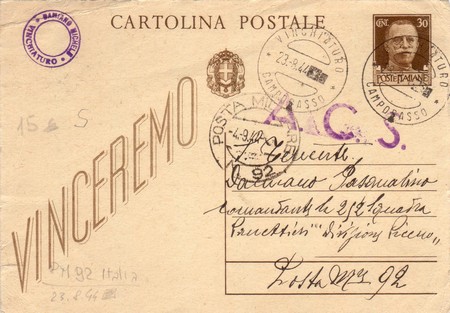 CARTOLINA POSTALE
DAMIANO MICHELE
VINCHIATURO
CENT. 30
POSTE ITALIANE
VINCHIATURO
23.8.44
CAMPOBASSO
VINCHIATURO
CAMPOBASSO
A.C.S.
POSTA MILITARE
4.9.44
92
15 S
VINCEREMO
S. Tenente
Damiano Pasqualino
comandante la 212 Squadra
Panettieri "Divisione Piceno"
Posta Mre 92
PM 92 Italia
23.8.44